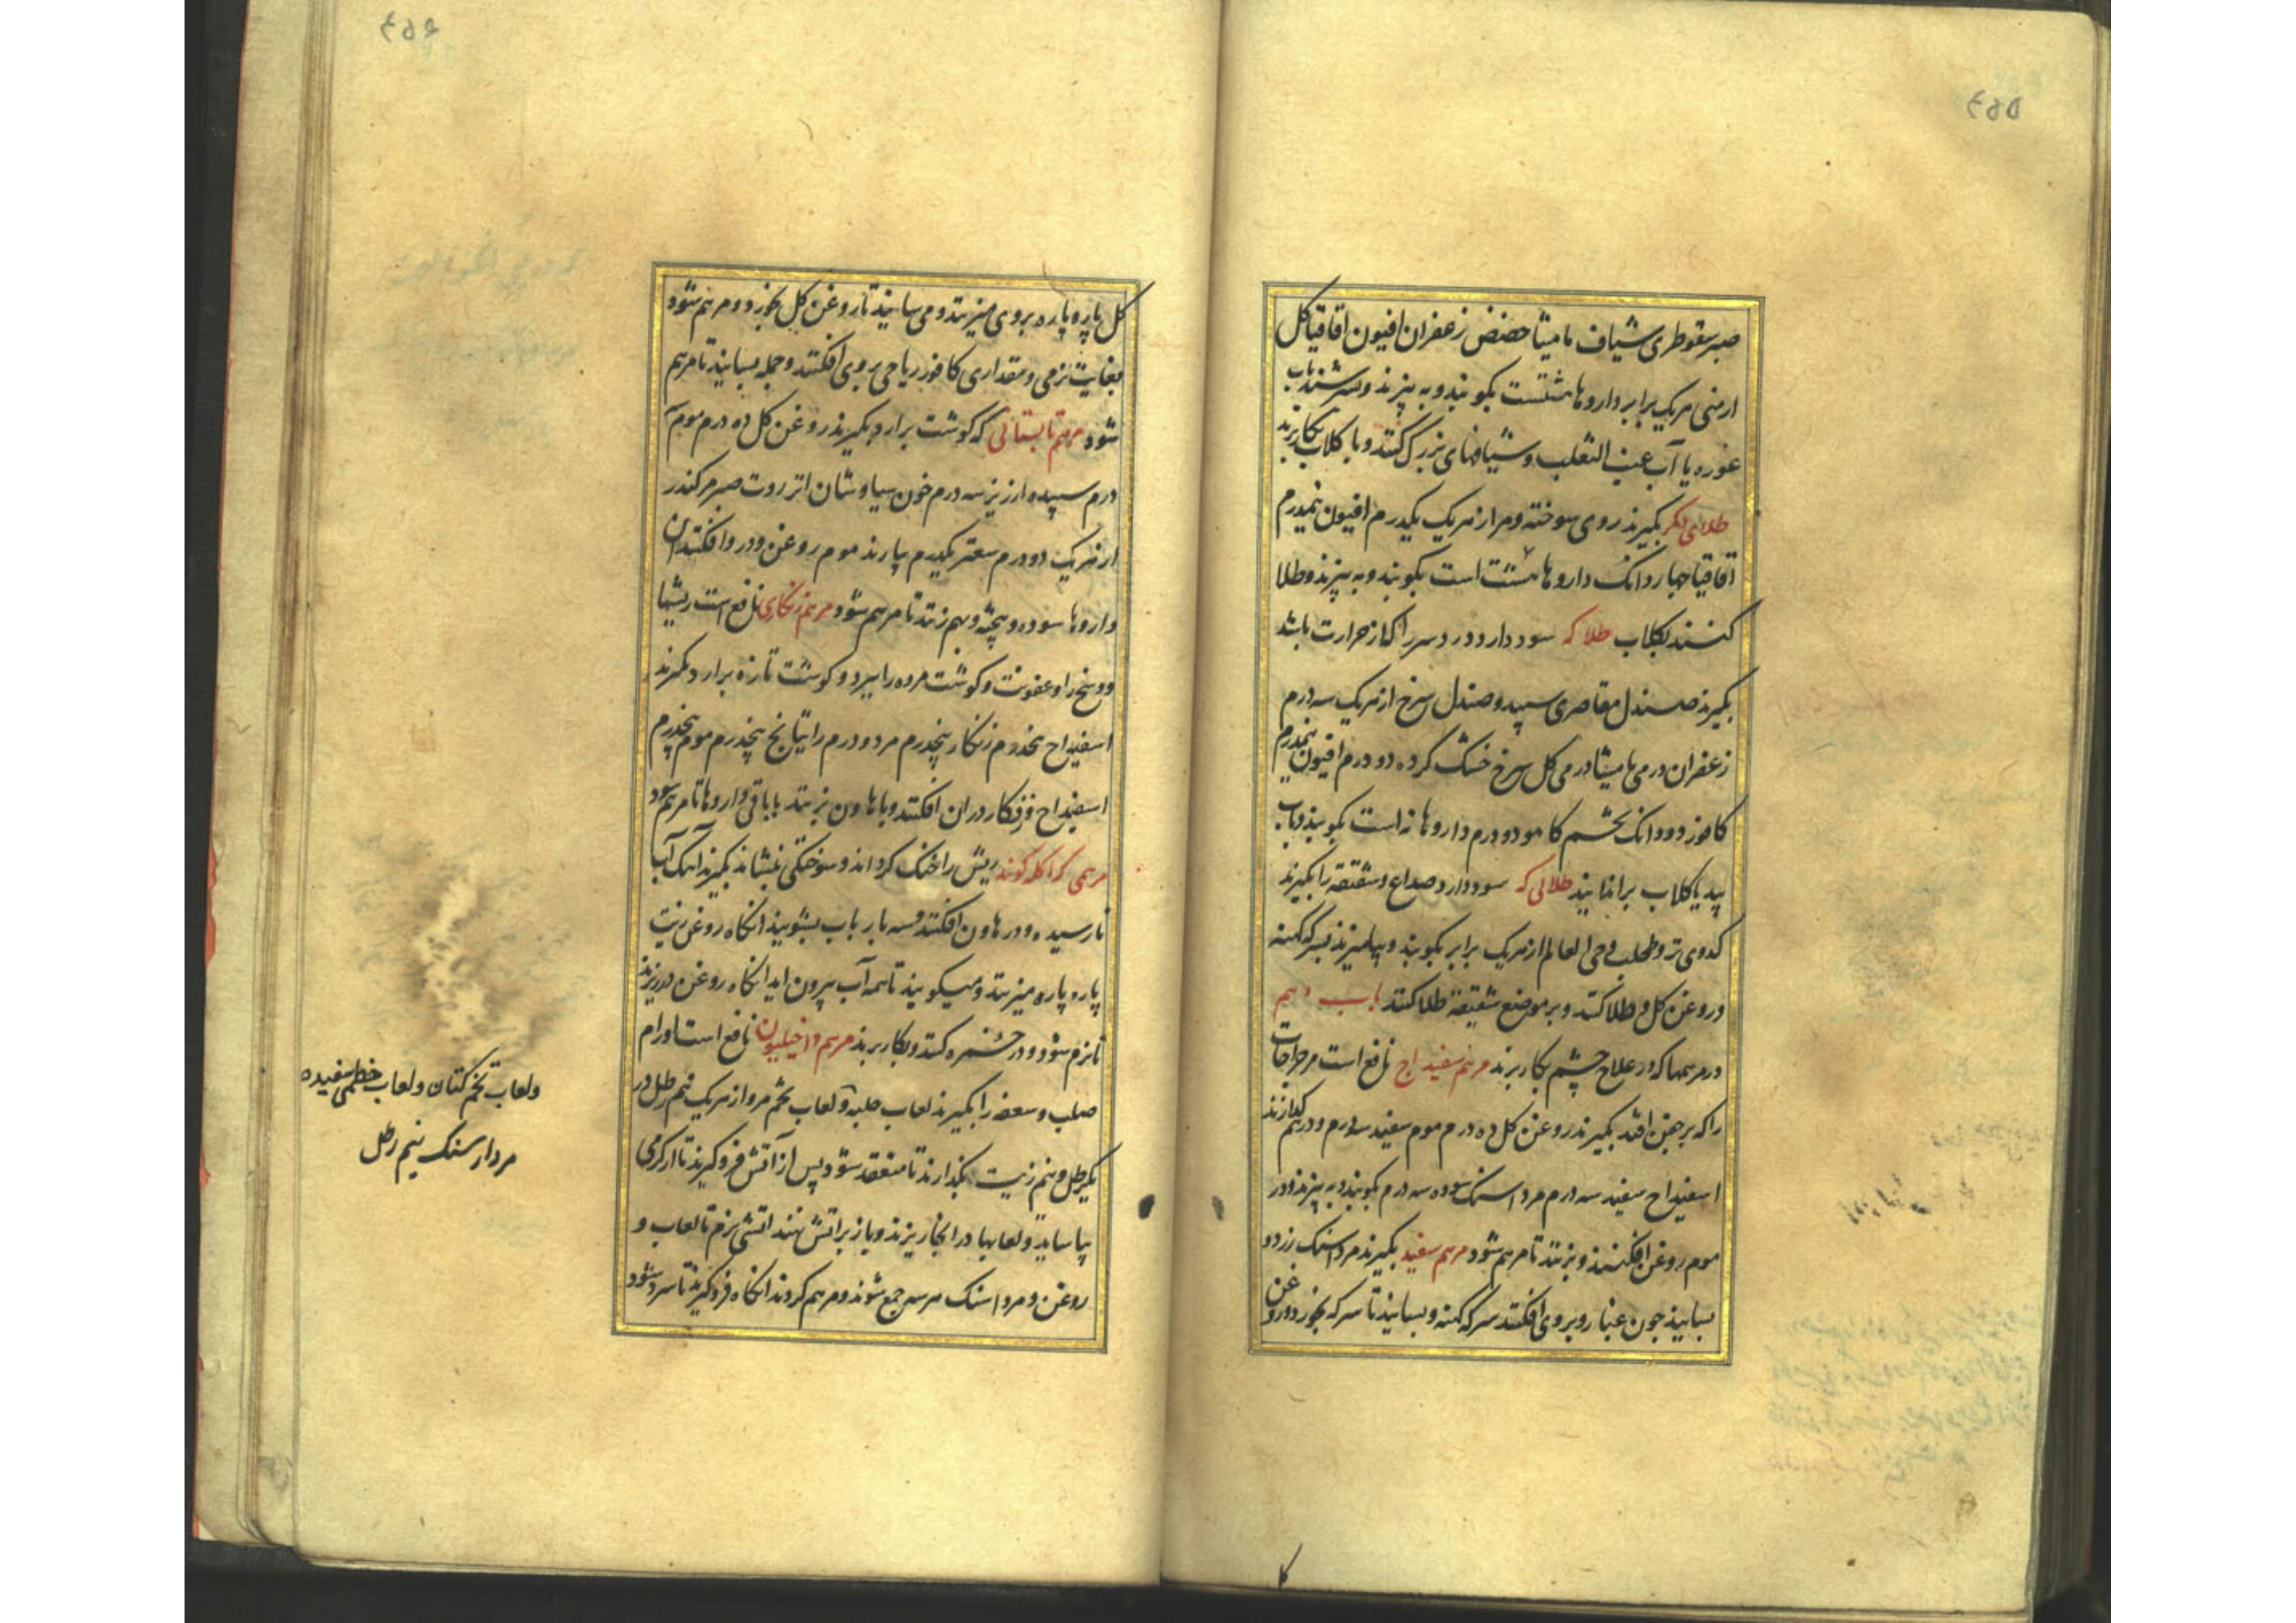 صبر سقوطری شیاف مامیثا حضض زعفران افیون اقاقیا کل
ارمنی هریک برابر داروها هشتست بکوبند و به بیزند و بسرشند باب
غوره یا آب عنب الثعلب و شیافهای بزرک کنند و با کلاب بکار برند
طلای دکر بکیرند روی سوخته و مر از هریک یکدرم افیون نیمدرم
اقاقیا چهار دانک داروها هشت است بکوبند و به بیزند و طلا
کنند بکلاب طلا که سود دارد درد سر را که از حرارت باشد
بکیرند صندل مقاصری سپید و صندل سرخ از هریک سه درم
زعفران درمی مامیثا درمی کل سرخ خشک کرده دو درم افیون نیمدرم
کافور دو دانک تخم کاهو دو درم داروها نه است بکوبند و باب
بید یا کلاب برانداینذ طلائی که سود دارد صداع و شقیقه را بکیرند
کدوی تر و طحلب و حی العالم از هریک برابر بکوبند و بیامیزند بسرکه کهنه
و روغن کل و طلا کنند و بر موضع شقیقه طلا کنند باب دهم
در مرهمها که در علاج چشم بکار برند مرهم سفیداج نافع است مر جراحات
را که بر جفن افتد بکیرند روغن کل ده درم موم سفید سه درم و در هم کدازند
اسفیداج سفید سه درم مرداسنک سوده سه درم بکوبند و به بیزند و در
موم روغن افکنند و بزنند تا مرهم شود مرهم سفید بکیرند مرداسنک زرد و
بسایند چون غبار و بروی افکنند سرکه کهنه و بسایند تا سرکه بخورد و روغن
کل پاره پاره بروی میریزند و می سایند تا روغن کل بخورد و مرهم شود
بغایت نرمی و مقداری کافور ریاحی بروی افکنند و جمله بسایند تا مرهم
شود مرهم تابستانی که کوشت برارد بکیرند روغن کل ده درم موم
درم سپیده ارزیز سه درم خون سیاوشان انزروت صبر مر کندر
از هریک دو درم سعتر یکدرم بیارند موم روغن و در و افکنند ان
داروها سوده و بیخته و بهم زنند تا مرهم شود مرهم زنکاری نافع است ریشها
و وسخ را و عفونت و کوشت مرده را ببرد و کوشت تازه برارد بکیرند
اسفیداج پنجدرم زنکار پنجدرم مر دو درم راتیانج پنجدرم موم پنجدرم
اسفیداج و زنکار دران افکنند و با هاون بزنند با باقی داروها تا مرهم شود
مرهمی که اکله کویند ریش را خنک کرداند و سوختکی بنشاند بکیرند آهک آب
نارسیده و در هاون افکنند و سه بار باب بشویند انکاه روغن زیت
پاره پاره میریزند و میکوبند تا همه آب بیرون اید انکاه روغن در ریزند
تا نرم شود و در خنبره کنند و بکار برند مرهم داخیلیون نافع است اورام
صلب و سعفه را بکیرند لعاب حلبه و لعاب تخم مرو از هریک نیم رطل در
یکرطل و نیم زیت بکذارند تا منعقد شود پس از آتش فرو کیرند تا از کرمی
بیاساید و لعابها در انجا ریزند و باز بر اتش نهند اتشی نرم تا لعاب و
روغن و مرداسنک هر سه جمع شوند و مرهم کردند انکاه فرو کیرند تا سرد شود
ولعاب تخم کتان ولعاب خطمی سفیده
مردارسنک نیم رطل